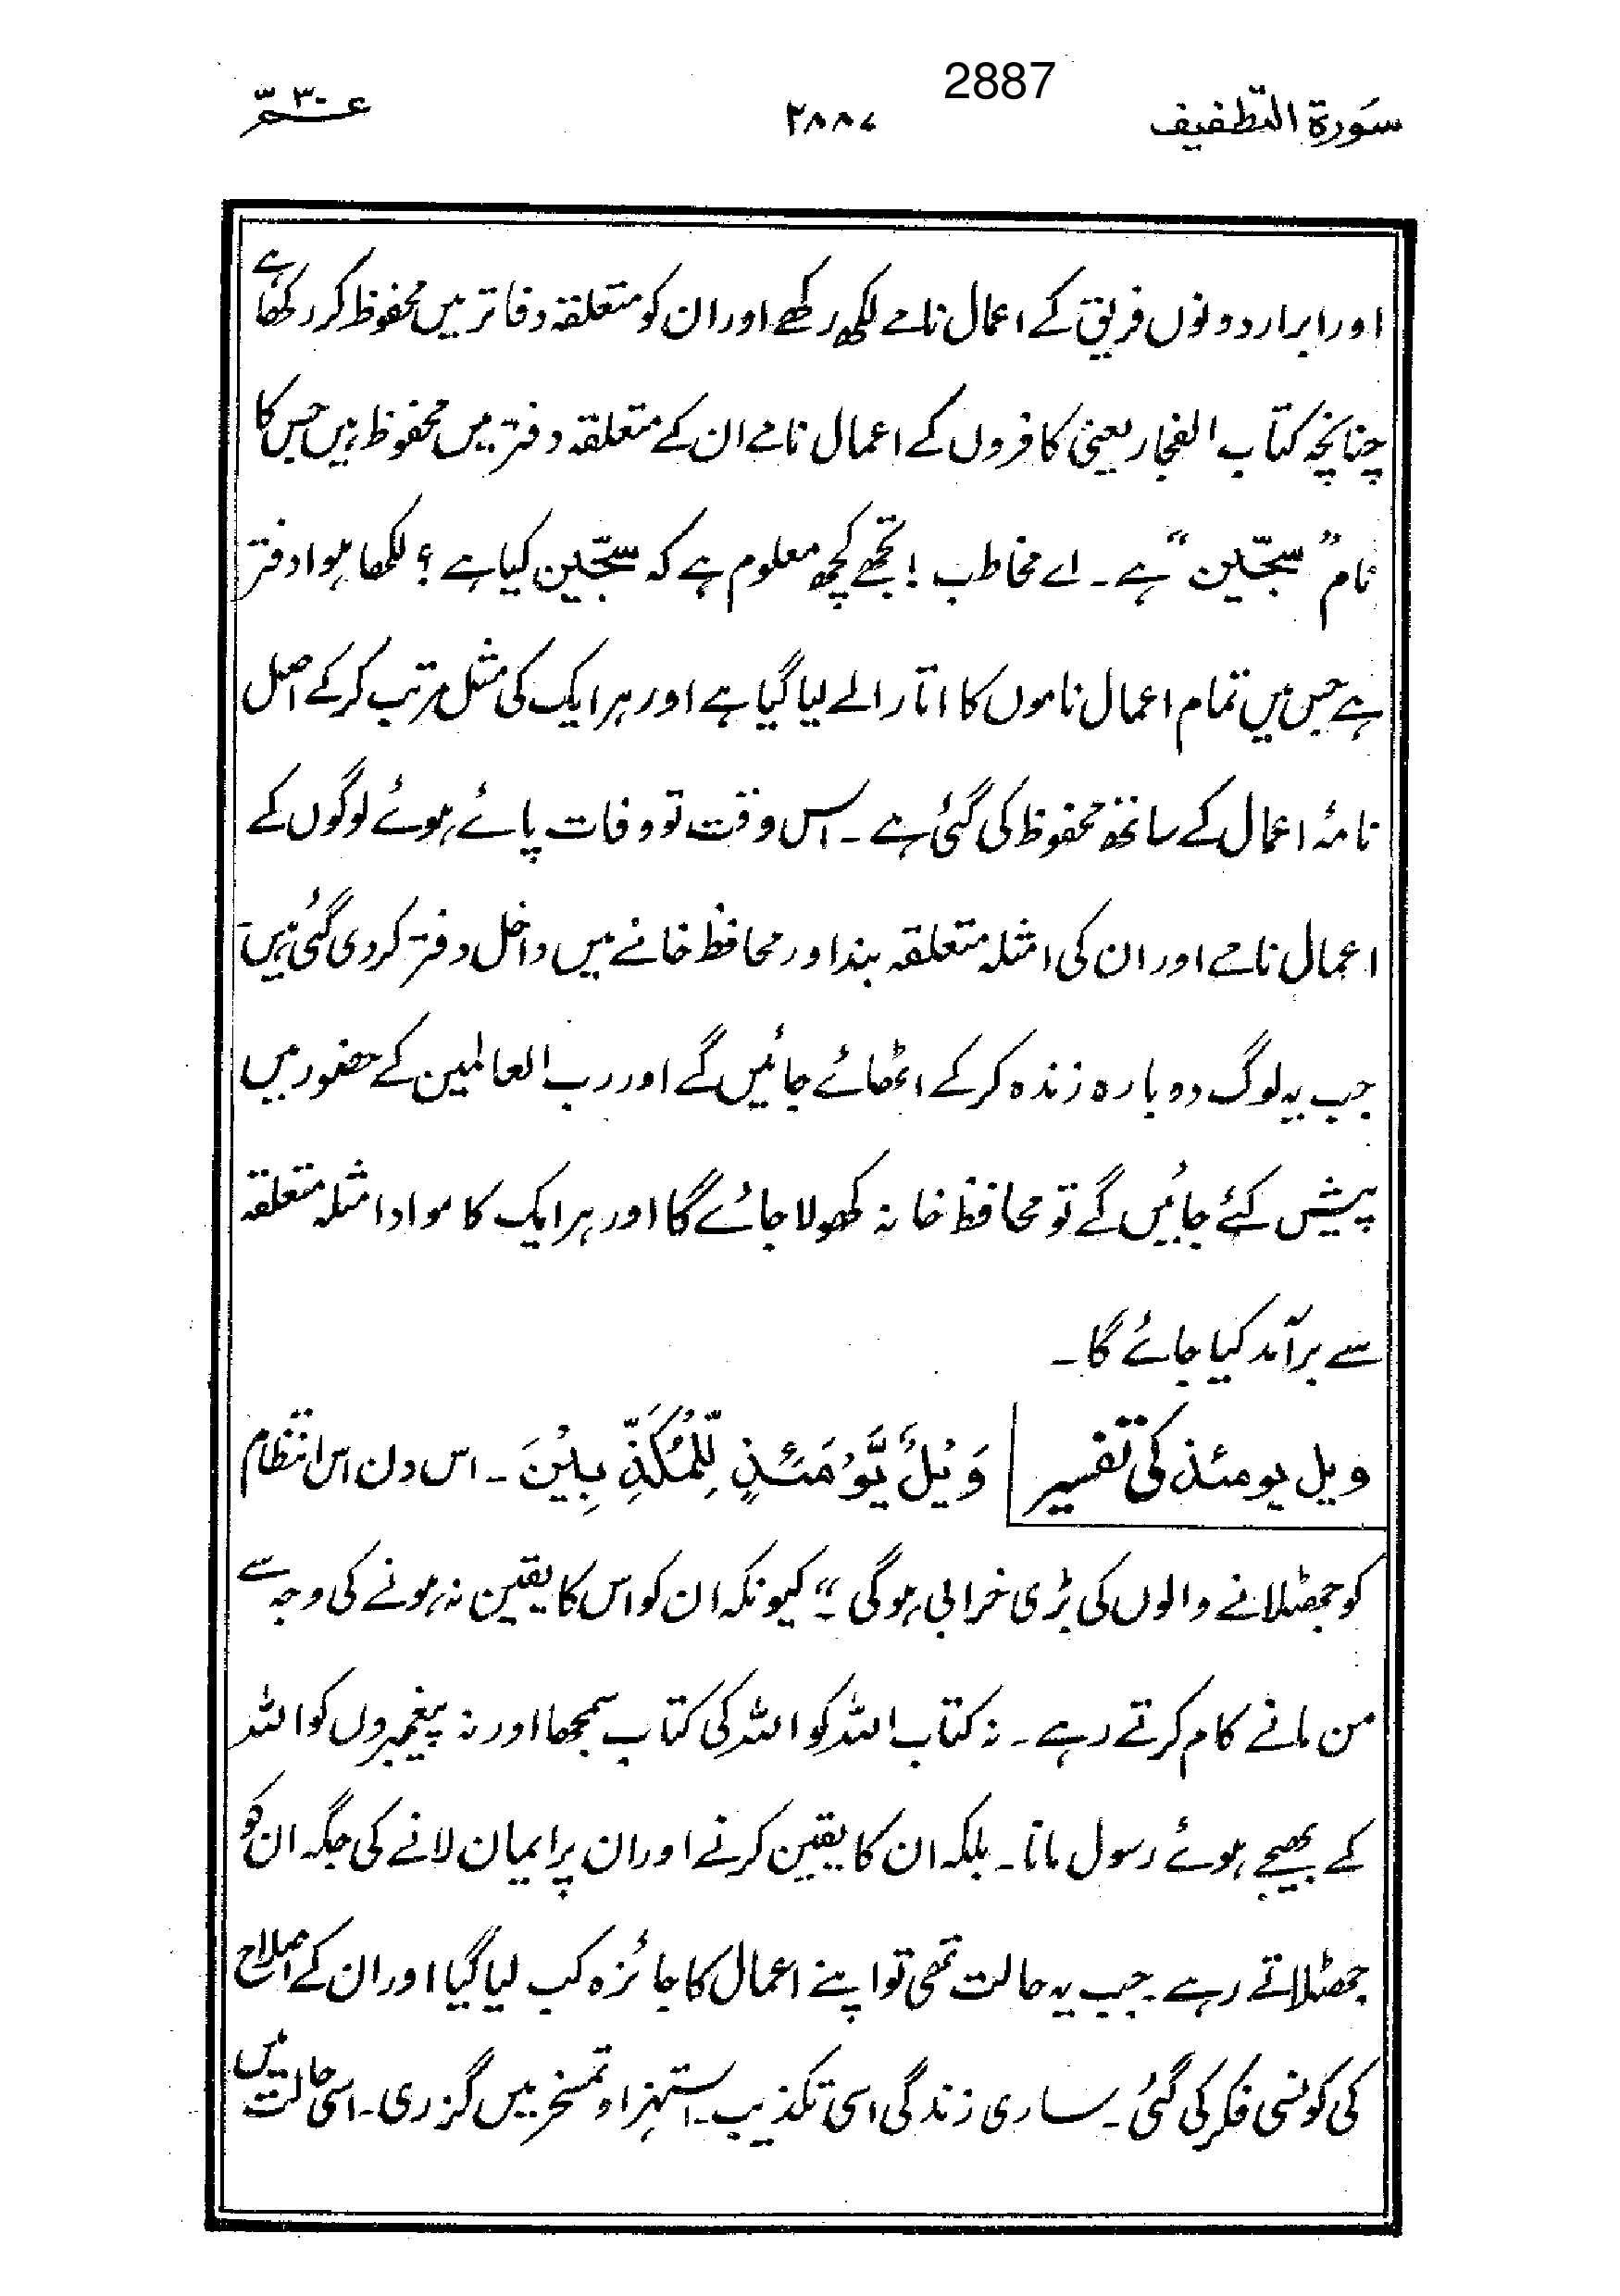 2887
سَورة التّطفیف
۲۸۸۷
عـــمّ ۳۰
اور ابرار دونوں فریق کے اعمال نامے لکھ رکھے اور ان کو متعلقہ دفاتر میں محفوظ کر رکھا ہے
چنانچہ کتاب الفجار یعنی کافروں کے اعمال نامے ان کے متعلقہ دفتر میں محفوظ ہیں جس کا
نام ”سجّین“ ہے۔ اے مخاطب! تجھے کچھ معلوم ہے کہ سجّین کیا ہے؟ لکھا ہوا دفتر
ہے جس میں تمام اعمال ناموں کا اتار الے لیا گیا ہے اور ہر ایک کی مثل مرتب کر کے اصل
نامۂ اعمال کے ساتھ محفوظ کی گئی ہے۔ اس وقت تو وفات پائے ہوئے لوگوں کے
اعمال نامے اور ان کی امثلہ متعلقہ بند اور محافظ خانے میں داخل دفتر کر دی گئی ہیں
جب یہ لوگ دوبارہ زندہ کر کے اٹھائے جائیں گے اور رب العالمین کے حضور میں
پیش کئے جائیں گے تو محافظ خانہ کھولا جائے گا اور ہر ایک کا مواد امثلہ متعلقہ
سے برآمد کیا جائے گا۔
ویل یومئذ کی تفسیر
وَیْلٌ یَّوْمَئِذٍ لِّلْمُکَذِّبِیْنَ۔ اس دن اس انتظام
کو جھٹلانے والوں کی بڑی خرابی ہو گی۔“ کیونکہ ان کو اس کا یقین نہ ہونے کی وجہ سے
من مانے کام کرتے رہے۔ نہ کتاب اللہ کو اللہ کی کتاب سمجھا اور نہ پیغمبروں کو اللہ
کے بھیجے ہوئے رسول مانا۔ بلکہ ان کا یقین کرنے اور ان پر ایمان لانے کی جگہ ان کو
جھٹلاتے رہے۔ جب یہ حالت تھی تو اپنے اعمال کا جائزہ کب لیا گیا اور ان کے اصلاح
کی کونسی فکر کی گئی۔ ساری زندگی اسی تکذیب۔ استہزاء و تمسخر میں گزری۔ اسی حالت میں